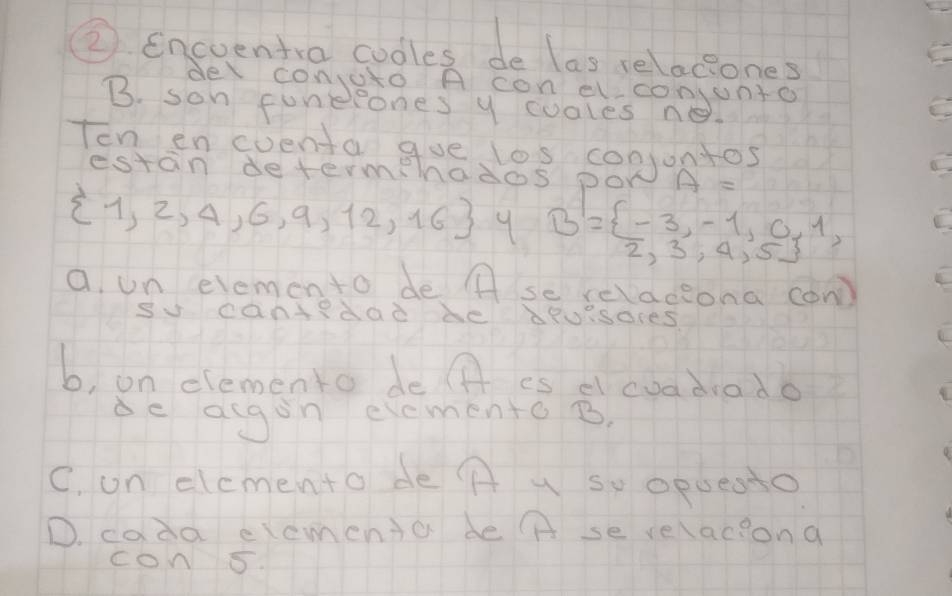 2. Encuentra cuales de las relaciones
del conjuto A con el conjunto
B. son funciones y cuales no.
Ten en cuenta que los conjuntos
están determinados por A =
{1, 2, 4, 6, 9, 12, 16} y B = {-3, -1, 0, 1,
2, 3, 4, 5}
a. un elemento de A se relaciona con
su cantidad de divisores
b, un elemento de A es el cuadrado
de algún elemento B.
C. un elemento de A y su opuesto.
D. cada elemento de A se relaciona
con 5.